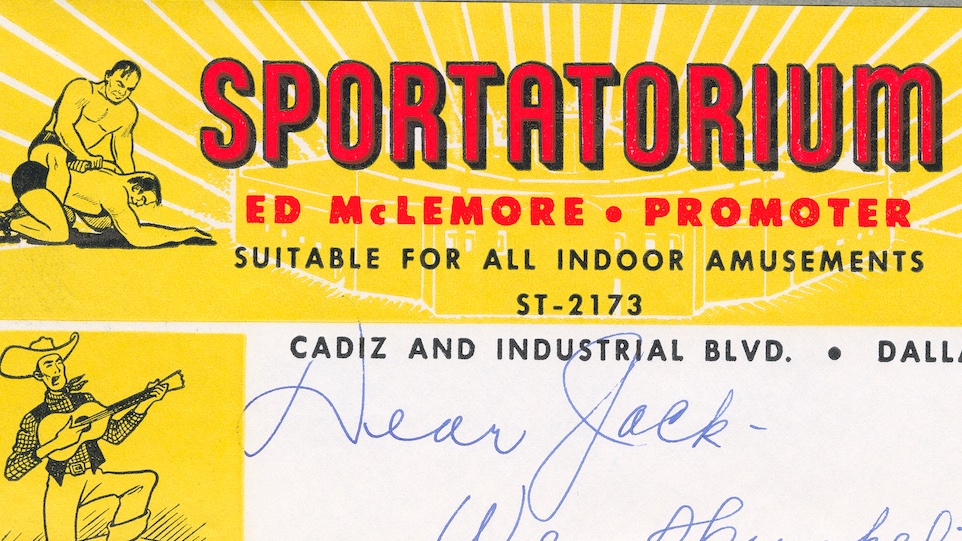 SPORTATORIUM
ED McLEMORE • PROMOTER
SUITABLE FOR ALL INDOOR AMUSEMENTS
ST-2173
CADIZ AND INDUSTRIAL BLVD. • DALLA
Dear Jack-
We